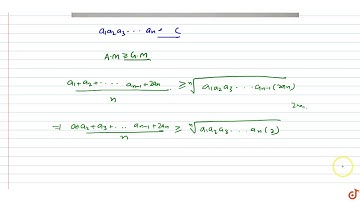 a₁a₂a₃ ... aₙ = C
A.M ≥ G.M
(a₁+a₂+ ... aₙ₋₁+2aₙ)/n ≥ ⁿ√(a₁a₂a₃ ... aₙ₋₁(2aₙ))
⇒ (a₁+a₂+a₃+ ... aₙ₋₁+2aₙ)/n ≥ ⁿ√(a₁a₂a₃ ... aₙ(2))